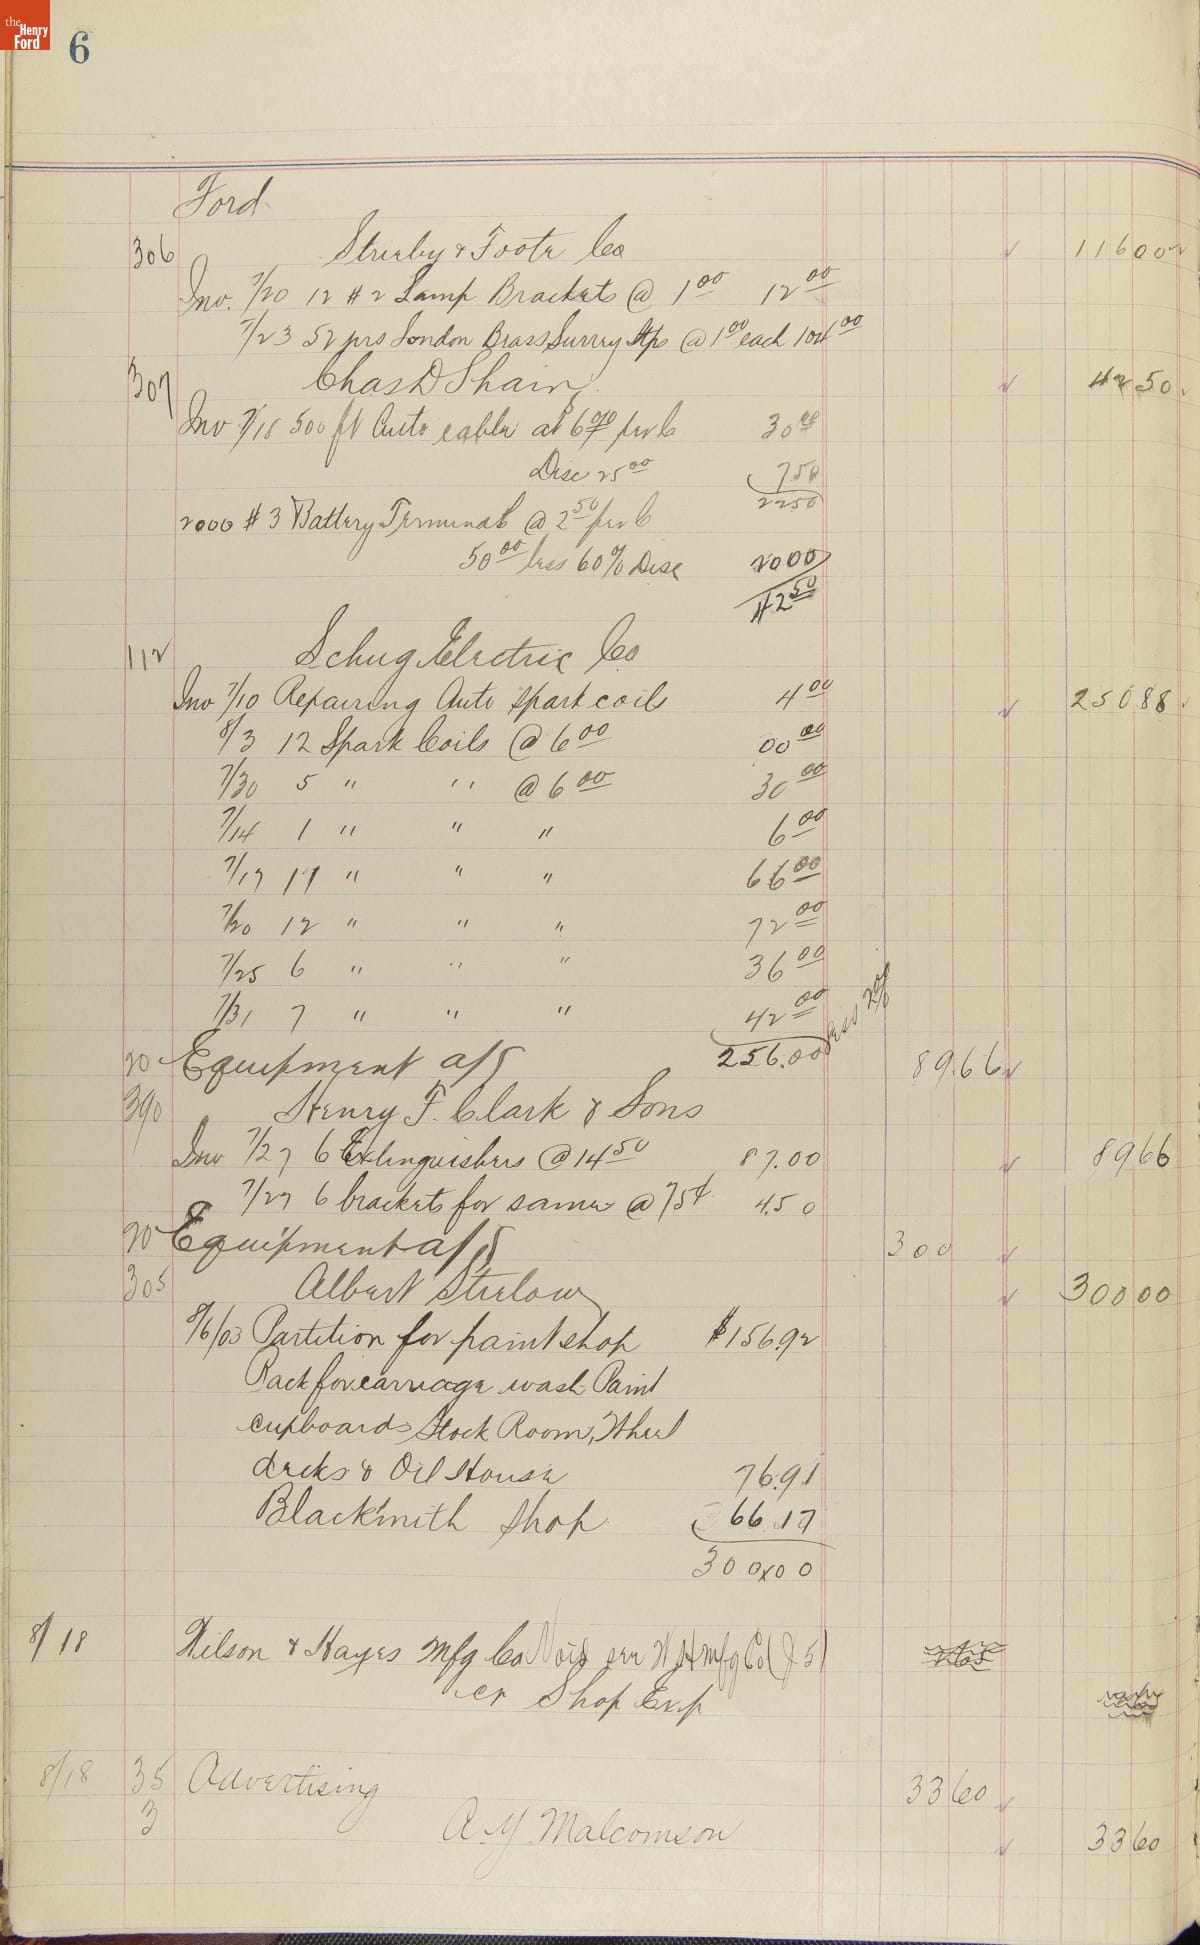 the Henry Ford
6
Ford
306 Strieby & Foote Co 11600
Inv. 7/20 12 #2 Lamp Brackets @ 1 00 12 00
7/23 52 prs London Brass Surrey @ 1 00 each 104 00
307 Chas D Shain 42 50
Inv 7/18 500 ft Auto cable at 6 00 per C 30 00
Disc 25 00 7 50
22 50
2000 #3 Battery Terminals @ 2 50 per C
50 00 less 60% Disc 20 00
42 50
112 Schug Electric Co
Inv 7/10 Repairing Auto spark coils 4 00 250 88
8/3 12 Spark Coils @ 6 00 00 00
7/30 5 " " @ 6 00 30 00
7/14 1 " " " 6 00
7/17 11 " " " 66 00
7/20 12 " " " 72 00
7/25 6 " " " 36 00
7/31 7 " " " 42 00
256.00 less 2%
20 Equipment a/c 89.66
390 Henry F. Clark & Sons
Inv 7/27 6 Extinguishers @ 14 50 87.00 89 66
7/27 6 brackets for same @ 75¢ 4.50
20 Equipment a/c 300
305 Albert Strelow 300 00
8/6/03 Partition for paint shop $156.92
Rack for carriage wash Paint
cupboards Stock Room, Wheel
& Oil House 76.91
Blacksmith Shop 66.17
300.00
8/18 Wilson & Hayes Mfg Co Void W H mfg Co (J 5)
cr Shop Exp
8/18 35 Advertising 33 60
3 A. Y. Malcomson 33 60